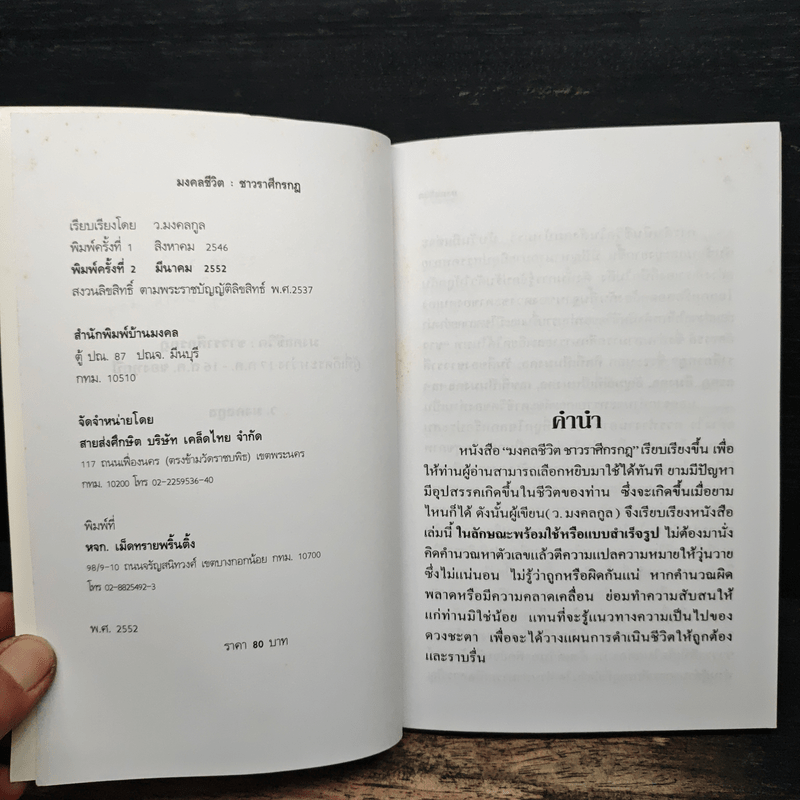 มงคลชีวิต : ชาวราศีกรกฎ
เรียบเรียงโดย ว.มงคลกูล
พิมพ์ครั้งที่ 1 สิงหาคม 2546
พิมพ์ครั้งที่ 2 มีนาคม 2552
สงวนลิขสิทธิ์ ตามพระราชบัญญัติลิขสิทธ์ พ.ศ.2537
สำนักพิมพ์บ้านมงคล
ตู้ ปณ. 87 ปณจ. มีนบุรี
กทม. 10510
จัดจำหน่ายโดย
สายส่งศึกษิต บริษัท เคล็ดไทย จำกัด
117 ถนนเฟื่องนคร (ตรงข้ามวัดราชบพิธ) เขตพระนคร
กทม. 10200 โทร 02-2259536-40
พิมพ์ที่
หจก. เม็ดทรายพริ้นติ้ง
98/9-10 ถนนจรัญสนิทวงศ์ เขตบางกอกน้อย กทม. 10700
โทร 02-8825492-3
พ.ศ. 2552
ราคา 80 บาท
คำนำ
หนังสือ "มงคลชีวิต ชาวราศีกรกฎ" เรียบเรียงขึ้น เพื่อ
ให้ท่านผู้อ่านสามารถเลือกหยิบมาใช้ได้ทันที ยามมีปัญหา
มีอุปสรรคเกิดขึ้นในชีวิตของท่าน ซึ่งจะเกิดขึ้นเมื่อยาม
ไหนก็ได้ ดังนั้นผู้เขียน(ว. มงคลกูล) จึงเรียบเรียงหนังสือ
เล่มนี้ ในลักษณะพร้อมใช้หรือแบบสำเร็จรูป ไม่ต้องมานั่ง
คิดคำนวณหาตัวเลขแล้วตีความแปลความหมายให้วุ่นวาย
ซึ่งไม่แน่นอน ไม่รู้ว่าถูกหรือผิดกันแน่ หากคำนวณผิด
พลาดหรือมีความคลาดเคลื่อน ย่อมทำความสับสนให้
แก่ท่านมิใช่น้อย แทนที่จะรู้แนวทางความเป็นไปของ
ดวงชะตา เพื่อจะได้วางแผนการดำเนินชีวิตให้ถูกต้อง
และราบรื่น